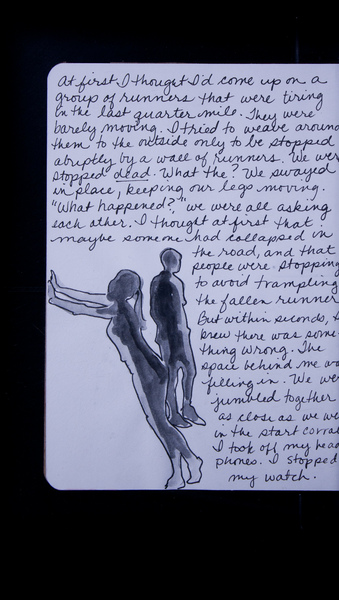 At first, I thought I'd come up on a
group of runners that were tiring
in the last quarter mile. They were
barely moving. I tried to weave around
them to the outside only to be stopped
abruptly by a wall of runners. We wer
stopped dead. What the? We swayed
in place, keeping our legs moving.
"What happened?," we were all asking
each other. I thought at first that
maybe someone had collapsed in
the road, and that
people were stopping
to avoid trampling
the fallen runner
But within seconds, 
knew there was some-
thing wrong. The
space behind me wa
filling in. We wer
jumbled together
as close as we we
in the start corral
I took off my head
phones. I stopped
my watch.